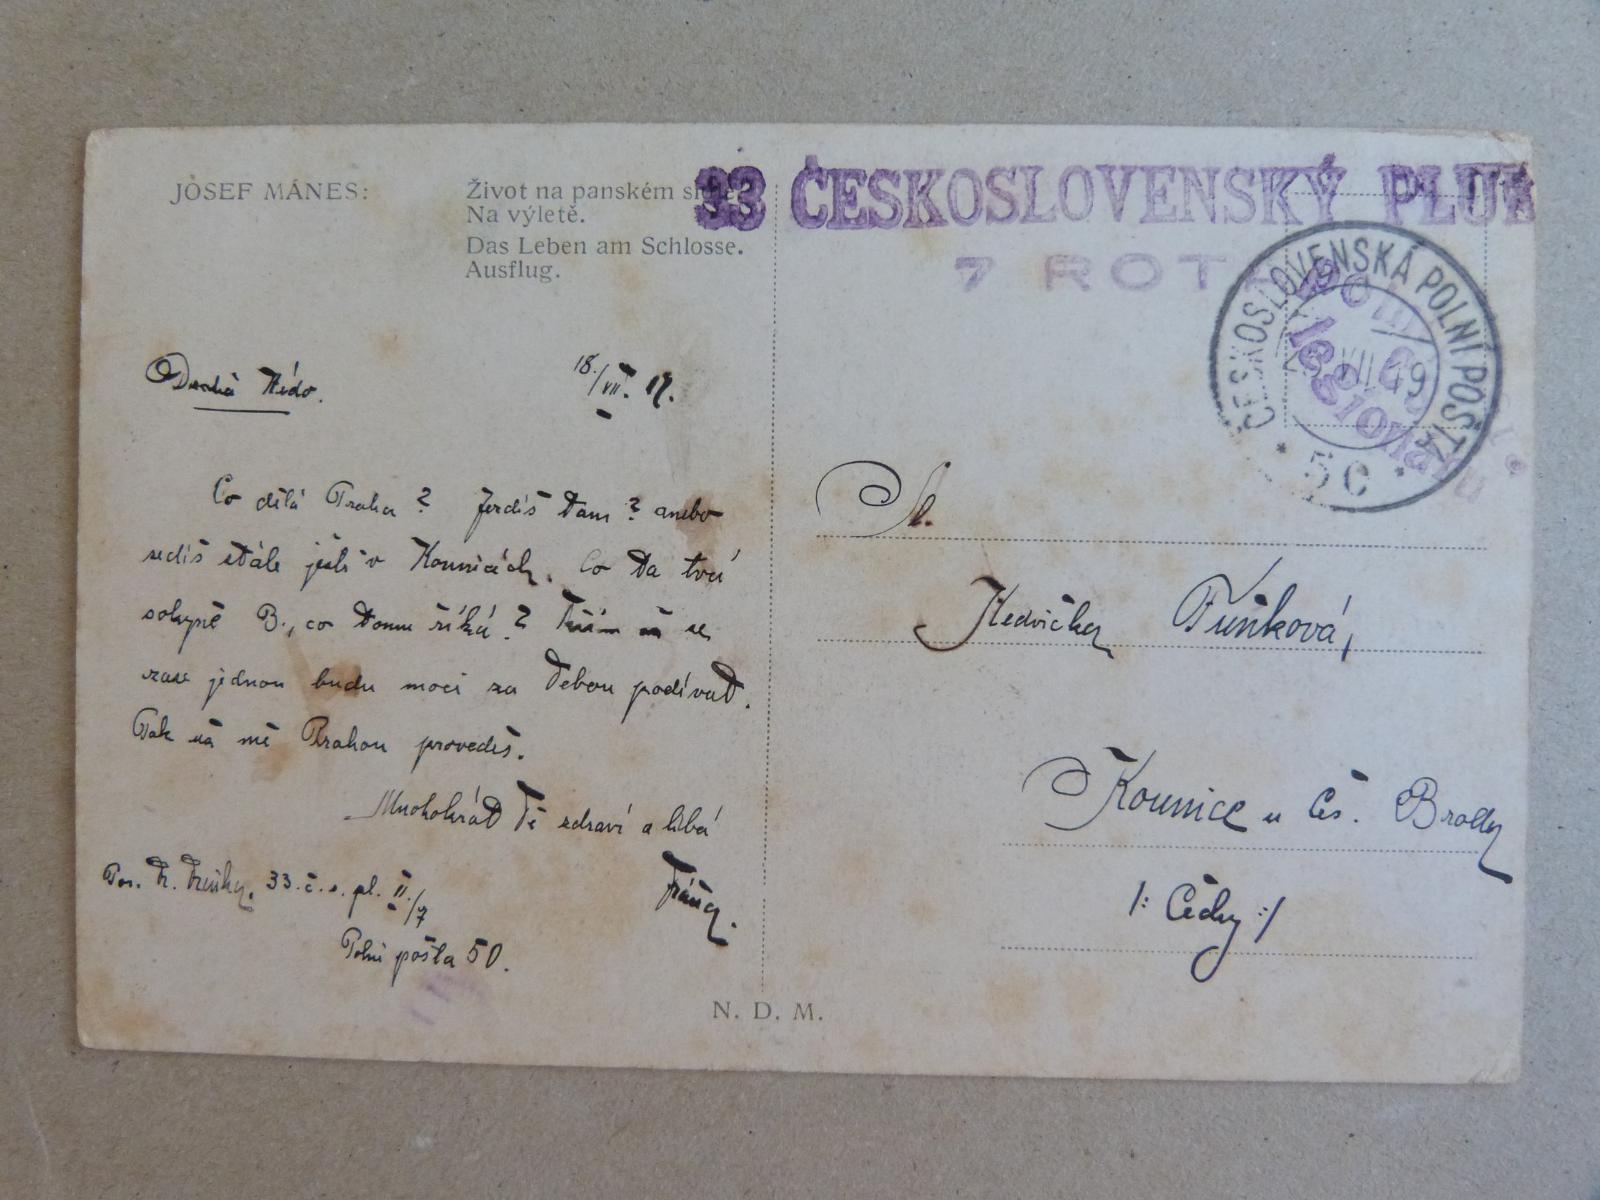 JOSEF MÁNES:
Život na panském sídle
Na výletě.
Das Leben am Schlosse.
Ausflug.
33 ČESKOSLOVENSKÝ PLUK
7 ROTA
ČESKOSLOVENSKÁ POLNÍ POŠTA
5C
Drahá Hédo.
18./VII. 19.
Co dělá Praha? Jezdíš tam? anebo
sedíš stále ještě v Kounicích. Co ta tvá
sokyně B., co tomu říká? se
zase jednou budu moci za Tebou podívat.
Pak mě Prahou provedeš.
Mnohokrát Tě zdraví a líbá
33. č. s. pl. II./7
Polní pošta 50.
Sl.
Hedvička
Kounice u Čes. Brodu
/: Čechy :/
N. D. M.